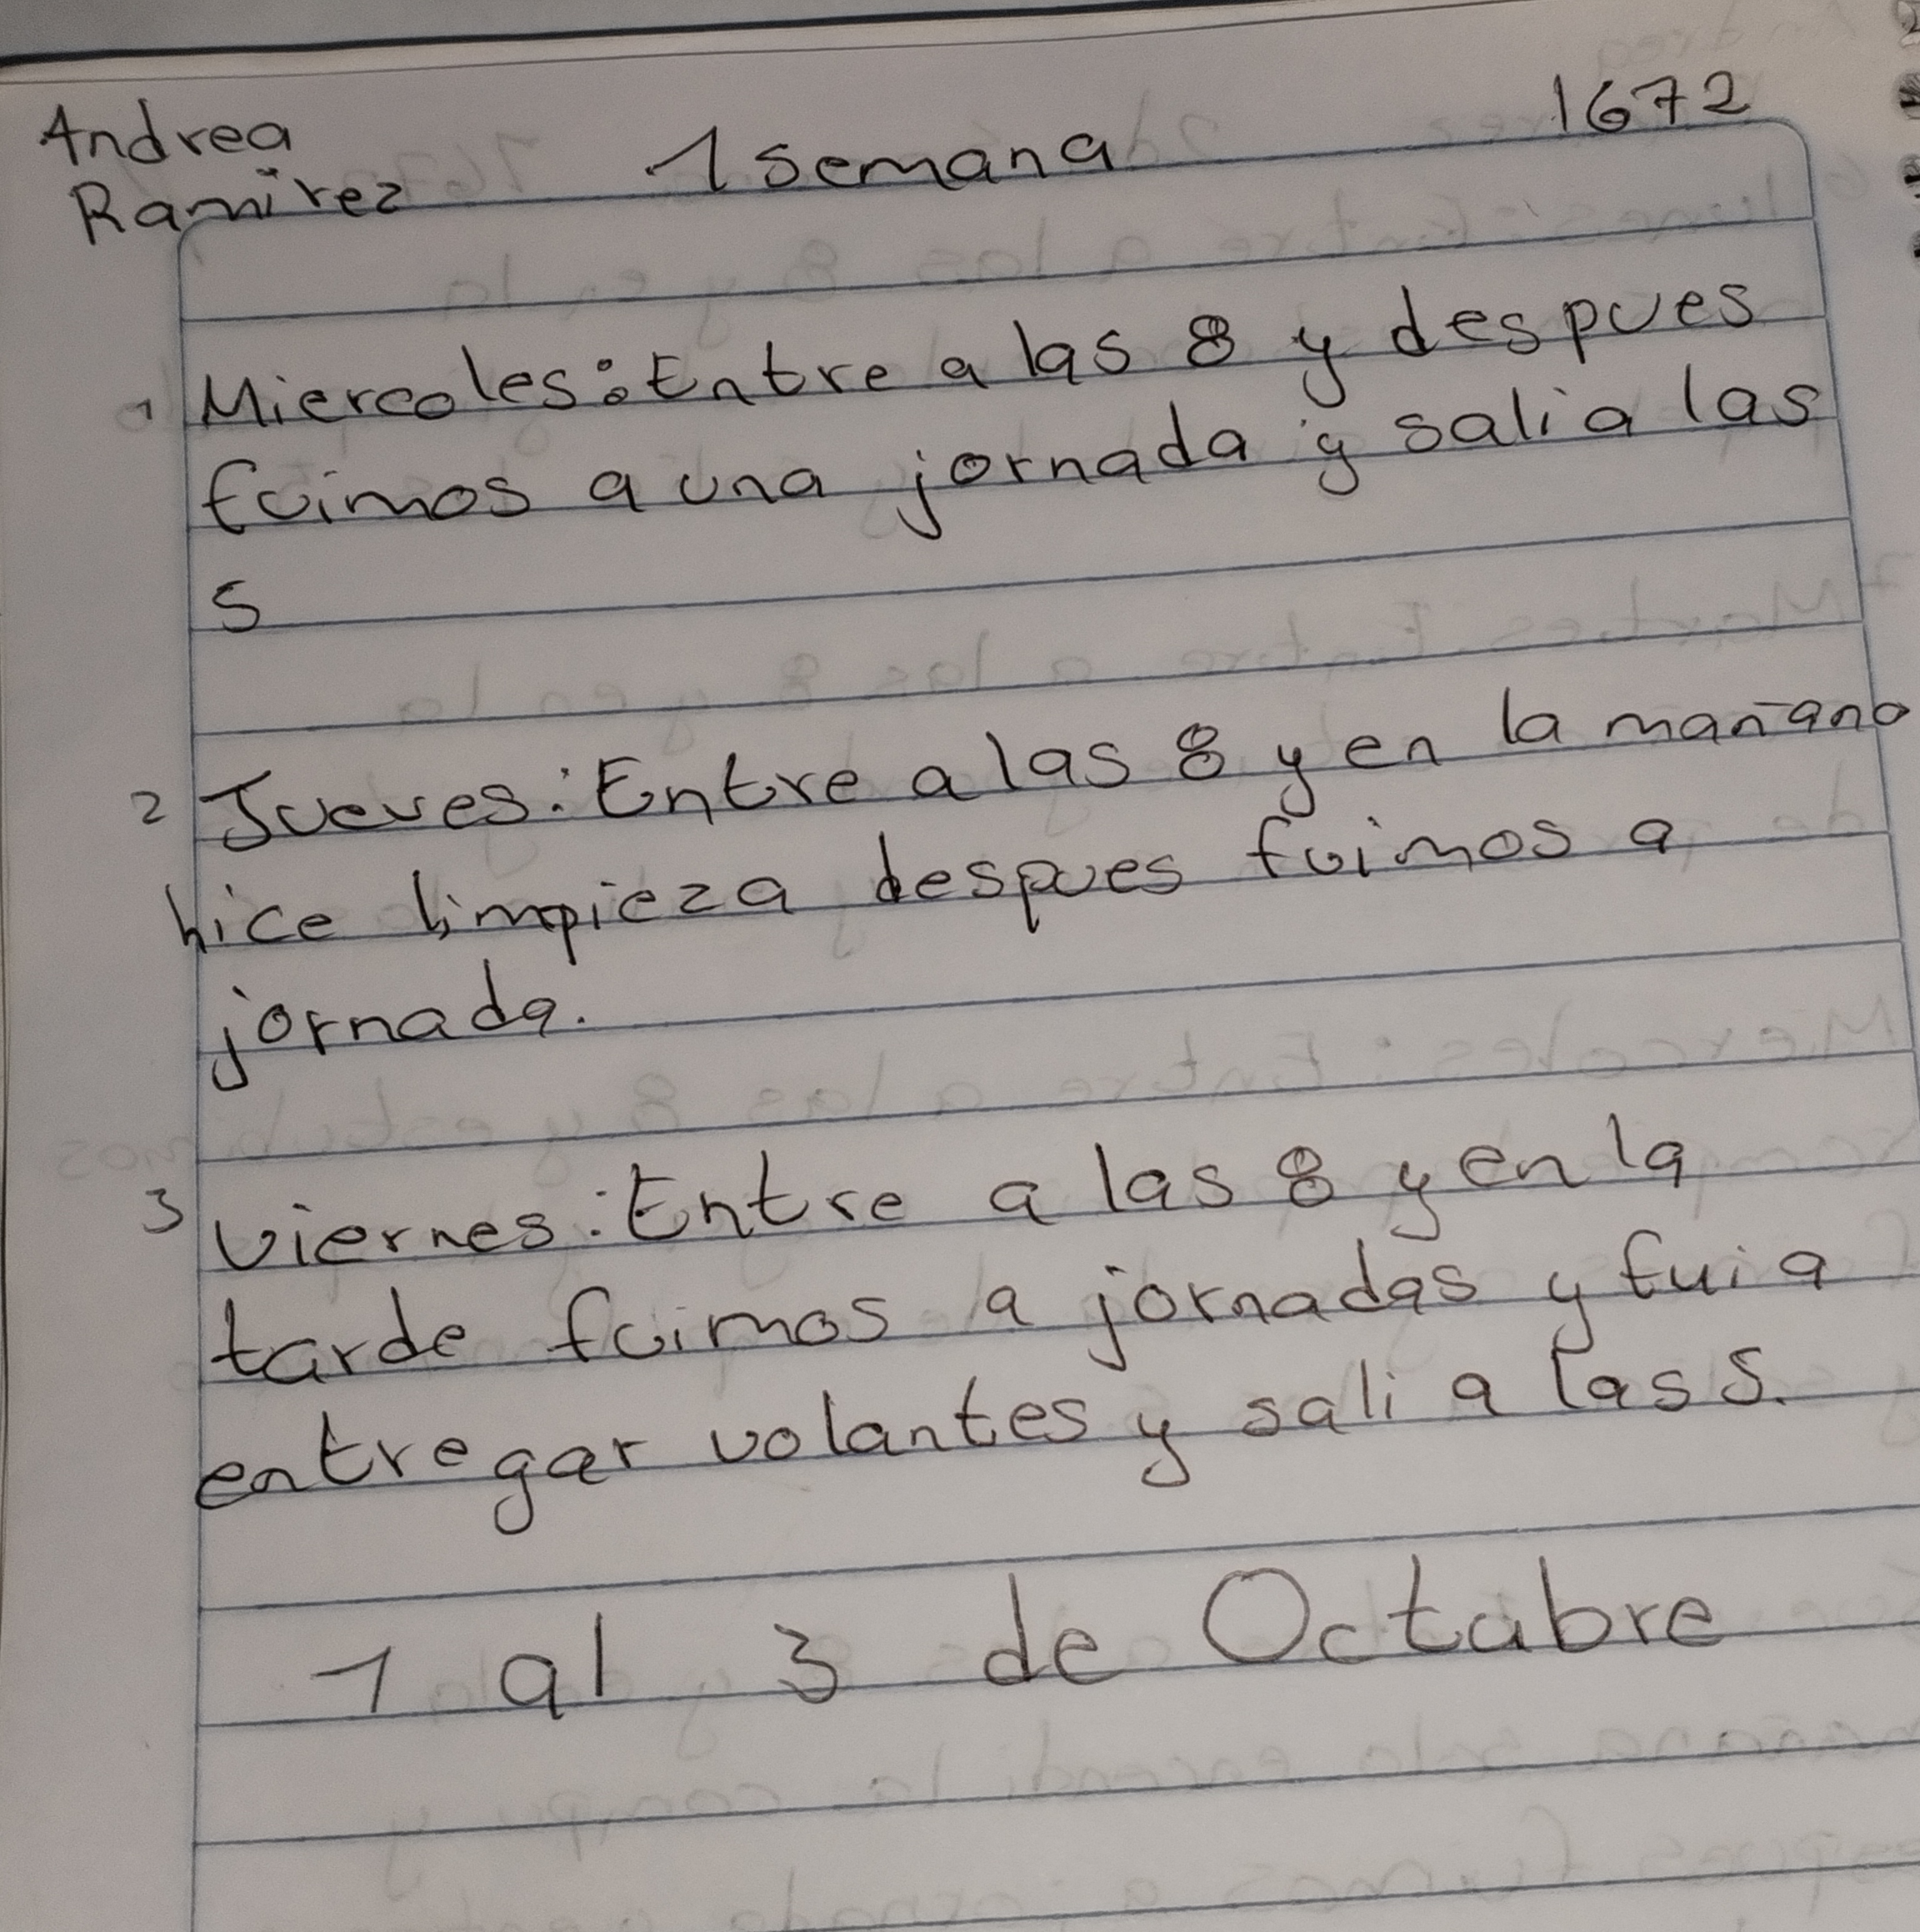 Andrea
Ramirez
1 semana
1672
1 Miercoles: Entre a las 8 y despues
fuimos a una jornada y sali a las
5
2 Jueves: Entre a las 8 y en la mañana
hice limpieza despues fuimos a
jornada.
3 viernes: Entre a las 8 y en la
tarde fuimos a jornadas y fui a
entregar volantes y sali a las 5.
1 al 3 de Octubre